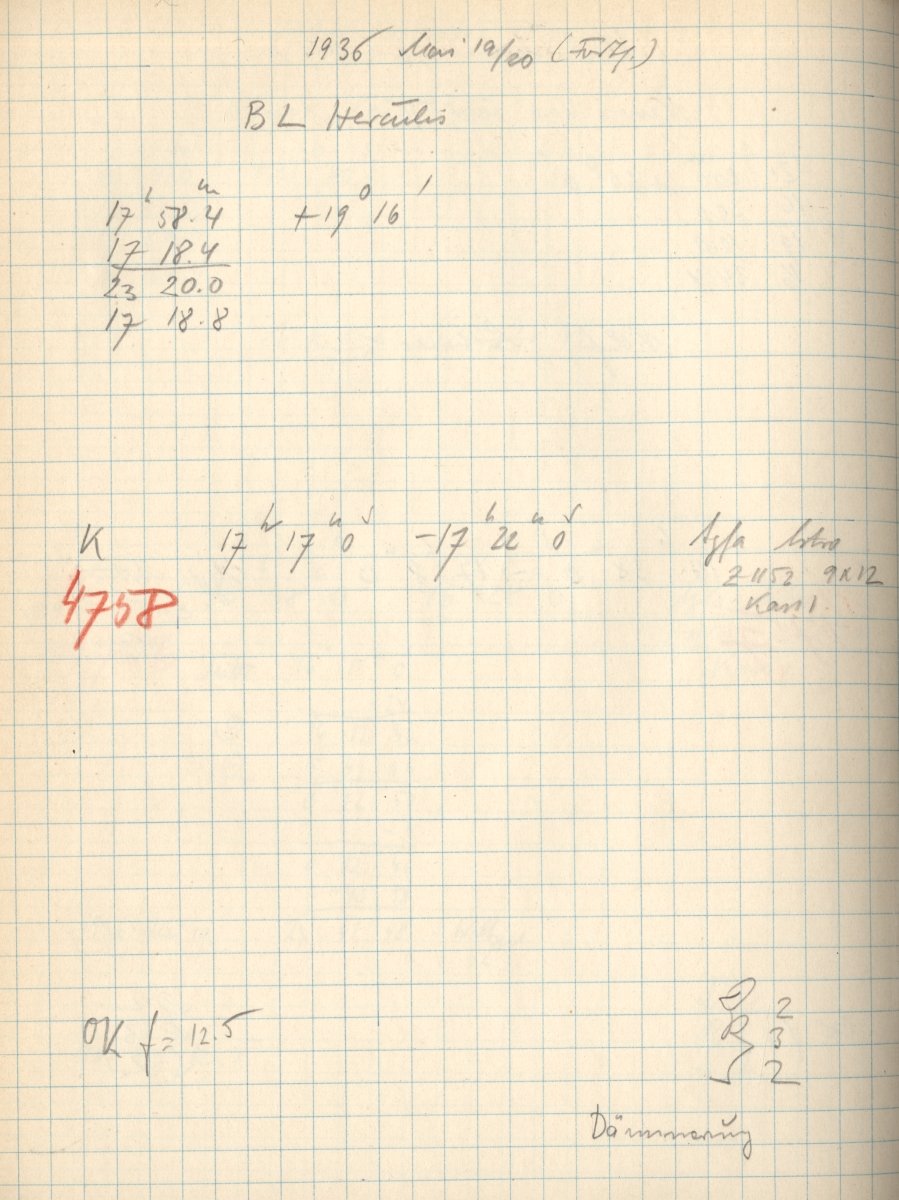 1936 Mai 19/20 (Forts.)
BL Herculis
17ʰ 58.4ᵐ +19° 16'
17 18.4
23 20.0
17 18.8
K 17ʰ 17ᵐ 0ˢ -17ʰ 22ᵐ 0ˢ Agfa Astro
4758 Z 1152 9x12
Kass 1
OK f = 12.5
D 2
R 3
2
Dämmerung